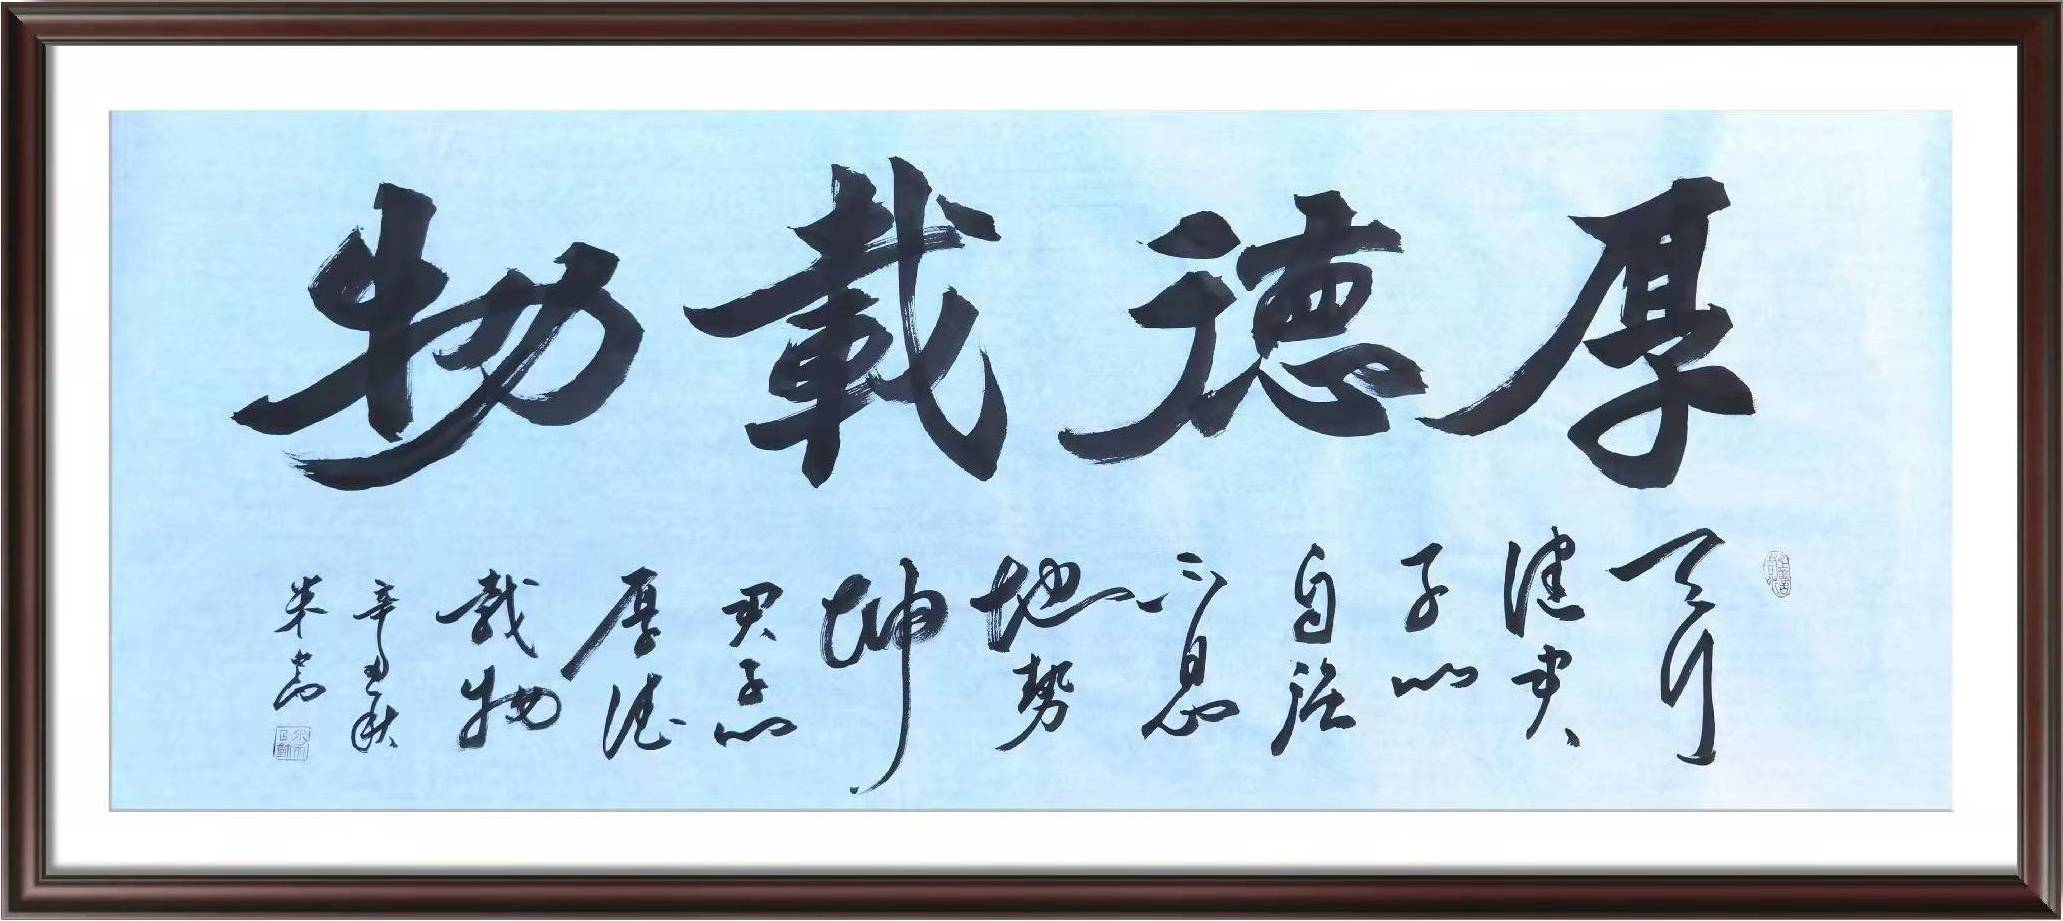 厚德載物
天行
健君
子以
自强
不息
地勢
坤
君子以
厚德
載物
辛丑秋